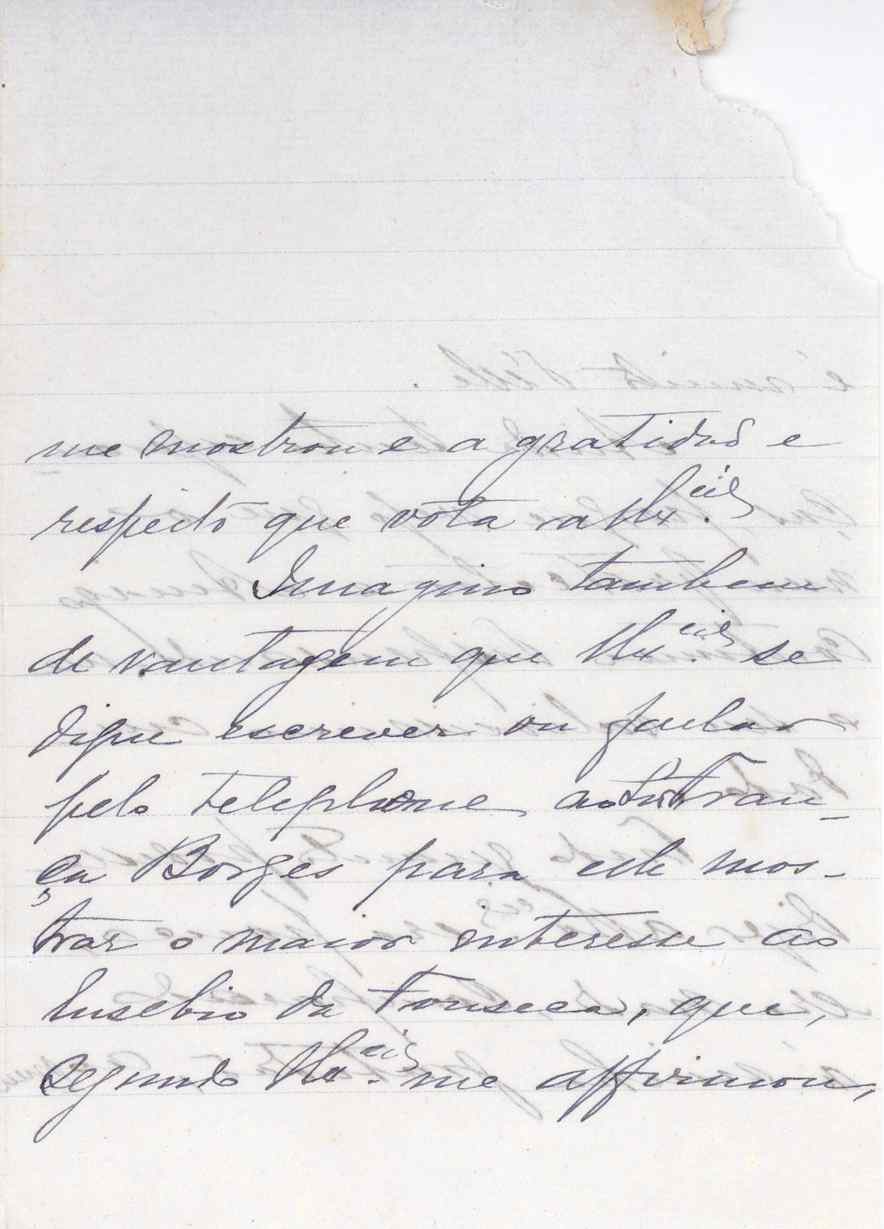 me mostrou e a gratidão e
respeito que vota a V. Ex.cia
Imagino tambem
de vantagem que V. Ex.cia se
digne escrever ou fallar
pelo telephone ao Fran-
ça Borges para este mos-
trar o maior interesse ao
Eusebio da Fonseca, que,
segundo V. Ex.cia me affirmou,